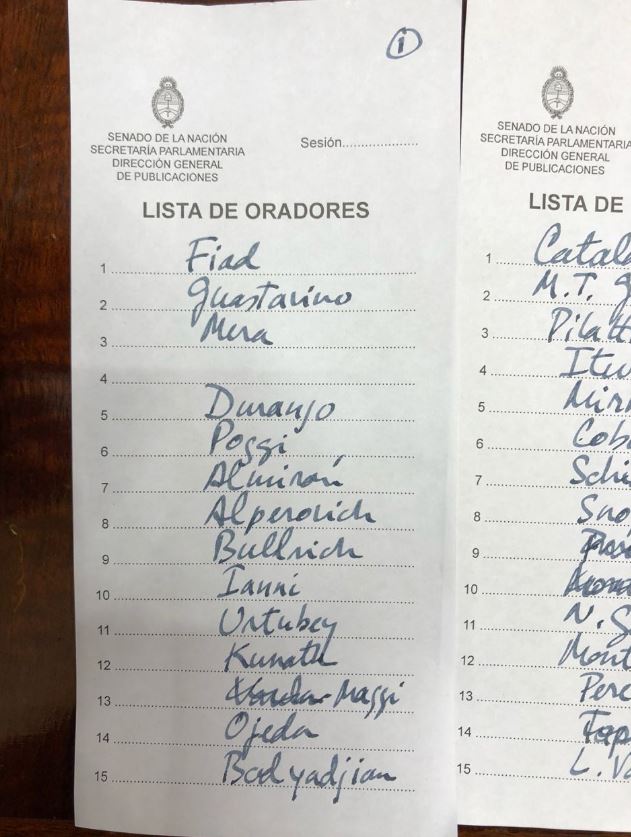 1
SENADO DE LA NACIÓN
SECRETARÍA PARLAMENTARIA
DIRECCIÓN GENERAL
DE PUBLICACIONES
Sesión
LISTA DE ORADORES
1 Fiad
2 Guastavino
3 Mera
4
5 Durango
6 Poggi
7 Almirón
8 Alperovich
9 Bullrich
10 Ianni
11 Urtubey
12 Kunath
13 Maggi
14 Ojeda
15 Bodyadjian
SENADO DE LA NACIÓN
SECRETARÍA PARLAMENTARIA
DIRECCIÓN GENERAL
DE PUBLICACIONES
LISTA DE
1 Catala
2 M.T. G
3 Pilatti
4 Itu
5 Mir
6 Cob
7 Schi
8 Sno
9
10
11 N. G
12 Mont
13 Perc
14
15 L. Va